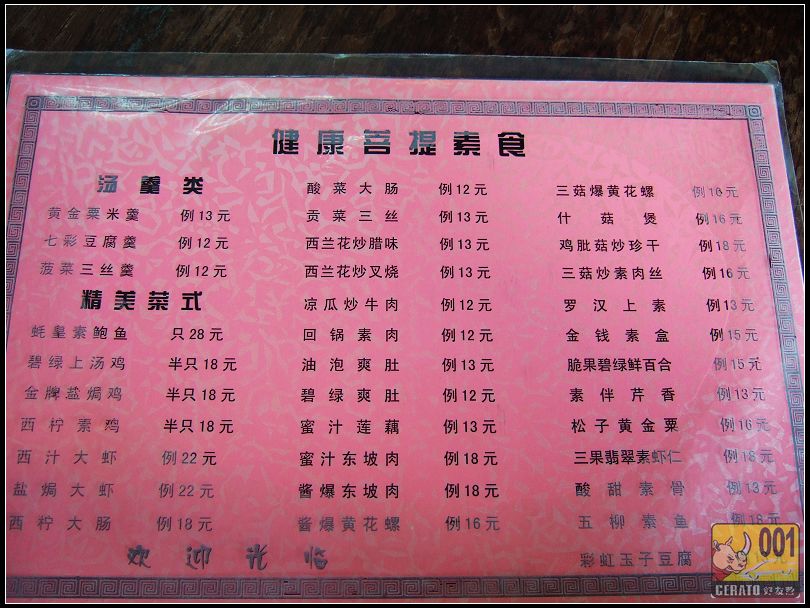 健康菩提素食
汤羹类
黄金粟米羹 例13元
七彩豆腐羹 例12元
菠菜三丝羹 例12元
精美菜式
蚝皇素鲍鱼 只28元
碧绿上汤鸡 半只18元
金牌盐焗鸡 半只18元
西柠素鸡 半只18元
西汁大虾 例22元
盐焗大虾 例22元
西柠大肠 例18元
酸菜大肠 例12元
贡菜三丝 例13元
西兰花炒腊味 例13元
西兰花炒叉烧 例13元
凉瓜炒牛肉 例12元
回锅素肉 例12元
油泡爽肚 例13元
碧绿爽肚 例12元
蜜汁莲藕 例13元
蜜汁东坡肉 例18元
酱爆东坡肉 例18元
酱爆黄花螺 例16元
三菇爆黄花螺 例16元
什菇煲 例16元
鸡肶菇炒珍干 例18元
三菇炒素肉丝 例16元
罗汉上素 例13元
金钱素盒 例15元
脆果碧绿鲜百合 例15元
素伴芹香 例13元
松子黄金粟 例16元
三果翡翠素虾仁 例18元
酸甜素骨 例13元
五柳素鱼 例18元
彩虹玉子豆腐
欢迎光临
001
CERATO